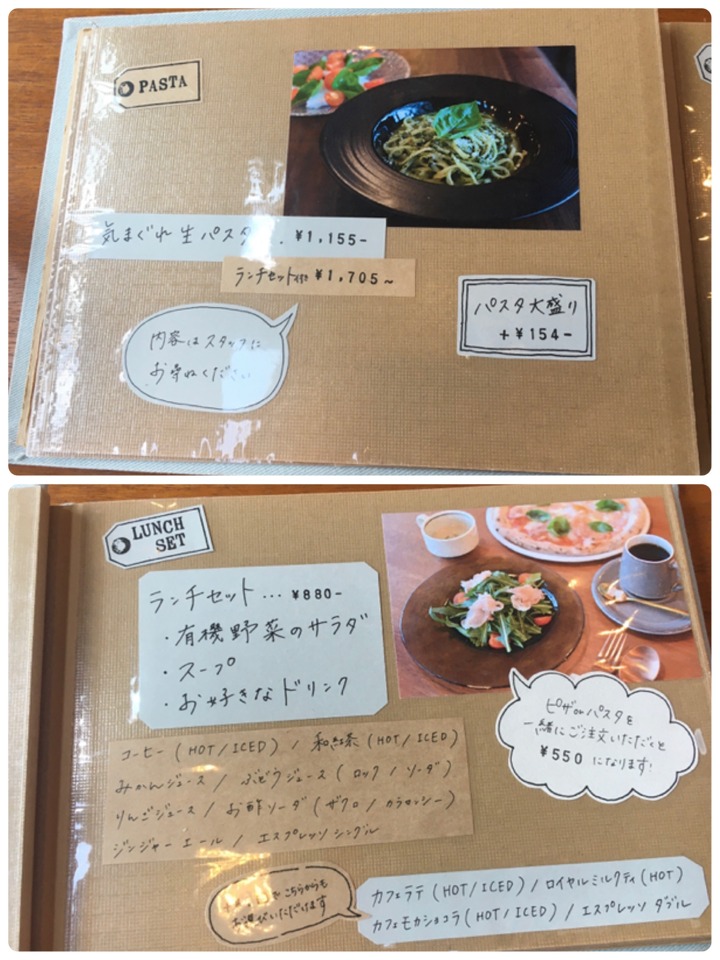 PASTA
気まぐれ生パスタ.. ¥1,155-
ランチセット付 ¥1,705~
パスタ大盛り
+¥154-
内容はスタッフに
お尋ねください
LUNCH
SET
ランチセット... ¥880-
・有機野菜のサラダ
・スープ
・お好きなドリンク
ピザorパスタを
一緒にご注文いただくと
¥550 になります!
コーヒー(HOT/ICED) / 和紅茶(HOT/ICED)
みかんジュース / ぶどうジュース(ロック/ソーダ)
りんごジュース / お酢ソーダ(ザクロ/カラマンシー)
ジンジャーエール / エスプレッソシングル
こちらからも
お選びいただけます
カフェラテ(HOT/ICED) / ロイヤルミルクティ(HOT)
カフェモカショコラ(HOT/ICED) / エスプレッソ ダブル